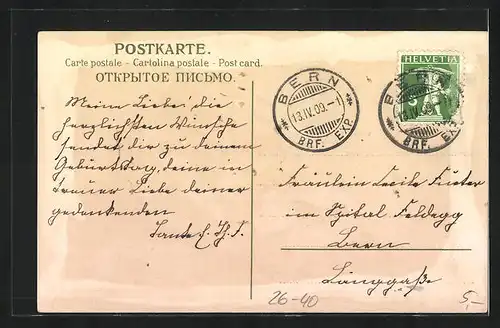 POSTKARTE.
Carte postale - Cartolina postale - Post card.
ОТКРЫТОЕ ПИСЬМО.
HELVETIA
5
BERN
13.IV.09.-1
BRF. EXP.
BERN
13.IV.09
BRF. EXP.
Meine Liebe! die
herzlichsten Wünsche
sendet dir zu deinem
Geburtstag, deine in
treuer Liebe deiner
gedenkenden
Tante
Fräulein Cécile Fueter
im Spital Feldegg
Bern
Länggaße
26-40
5,-